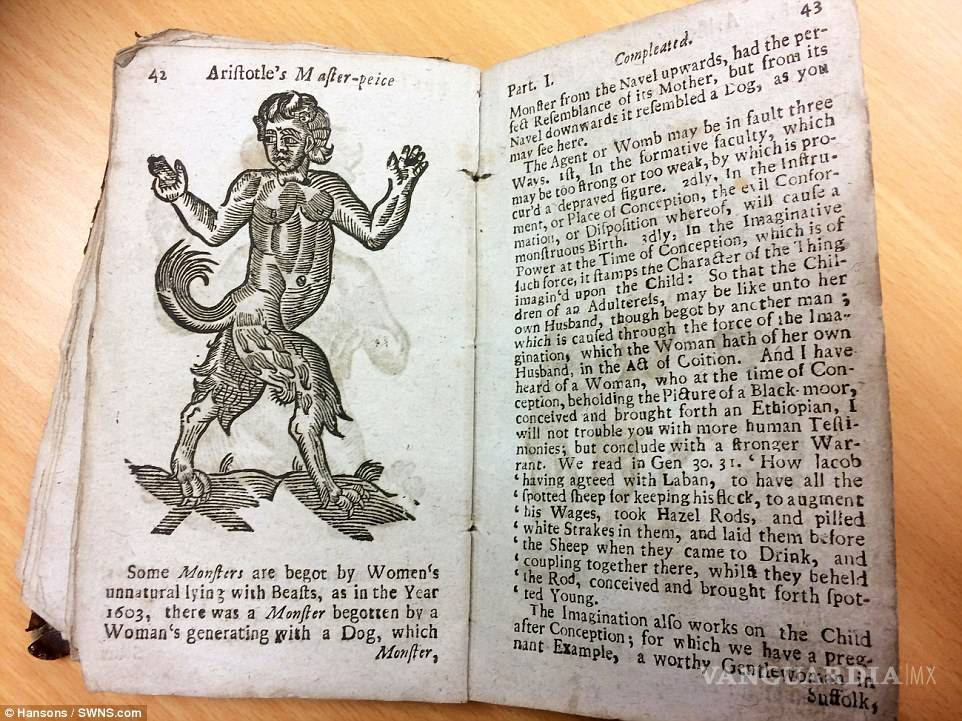 42 Ariſtotle's Maſter-peice
Some Monſters are begot by Women's
unnatural lying with Beaſts, as in the Year
1603, there was a Monſter begotten by a
Woman's generating with a Dog, which
Monſter,
43
Part. I. Compleated.
Monſter from the Navel upwards, had the per-
fect Reſemblance of its Mother, but from its
Navel downwards it reſembled a Dog, as you
may ſee here.
The Agent or Womb may be in fault three
Ways. 1ſt, In the formative faculty, which
may be too ſtrong or too weak, by which is pro-
cur'd a depraved figure. 2dly, In the Inſtru-
ment, or Place of Conception, the evil Confor-
mation, or Diſpoſition whereof, will cauſe a
monſtruous Birth. 3dly, In the Imaginative
Power at the Time of Conception, which is of
ſuch force, it ſtamps the Character of the Thing
imagin'd upon the Child: So that the Chil-
dren of an Adultereſs, may be like unto her
own Husband, though begot by another man;
which is cauſed through the force of the Ima-
gination, which the Woman hath of her own
Husband, in the Act of Coition. And I have
heard of a Woman, who at the time of Con-
ception, beholding the Picture of a Black-moor,
conceived and brought forth an Ethiopian, I
will not trouble you with more human Teſti-
monies; but conclude with a ſtronger War-
rant. We read in Gen 30. 31. ‘ How Jacob
‘ having agreed with Laban, to have all the
‘ ſpotted ſheep for keeping his flock, to augment
‘ his Wages, took Hazel Rods, and pilled
‘ white Strakes in them, and laid them before
‘ the Sheep when they came to Drink, and
‘ coupling together there, whilſt they beheld
‘ the Rod, conceived and brought forth ſpot-
‘ ted Young.
The Imagination alſo works on the Child
after Conception; for which we have a preg-
nant Example, a worthy Gentlewoman in
Suffolk,
VANGUARDIA|MX
© Hansons / SWNS.com